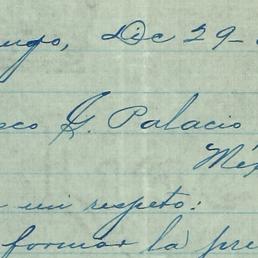 Dic 29-
G. Palacio
Méx
mi respeto:
formar la pre